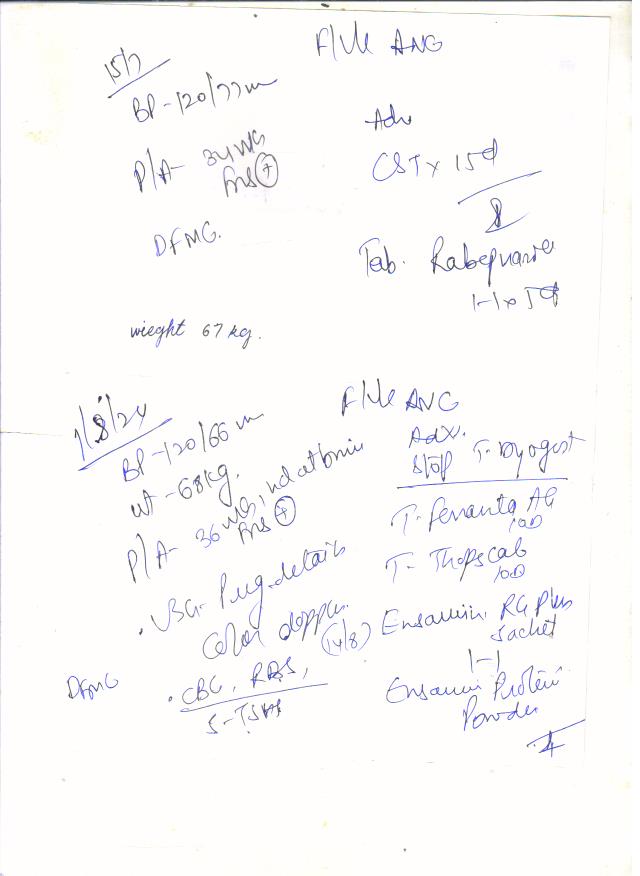 15/7
F/U ANG
BP-120/77 m
P/A- 34 wks
FHS (+)
DFMC.
weight 67 kg.
Adv
CST x 15d
Tab.
1-1 x 5d
1/8/24
F/U ANG
BP-120/66 m
wt-68kg.
P/A- 36 wks,
FHS (+)
. USG- Preg. details
Color doppler
(14/8)
DFMC
. CBC, RBS,
S-TSH
Adv.
Stop T. Dydogest
T. AG
10D
T-
10D
Ensamin Plus
Sachet
1-1
Ensamin Protein
Powder